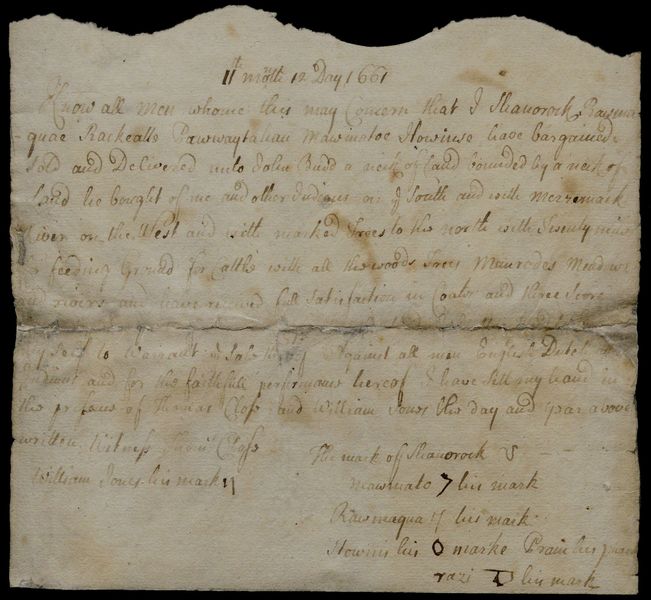 11th month 12 Day 1661
Know all Men whome this may Concern that I Shanorock Rawma
quae Rackeatte Pawwaytahan Mawmatoe Howinse have bargained
sold and Delivered unto John Budd a neck of Land bounded by a neck of
Land he bought of me and other Indians on ye South and with Merremack
River on the West and with marked Trees to the north with Twenty miles
feeding Ground for Cattle with all the woods Trees
and rivers and have received full Satisfaction in Coats and three Score
my self to Warrant ye Sale against all men English Dutch
Indians and for the faithfull performans hereof I have sett my hand in
the presens of Thomas Close and William Jones the day and year above
written Witness Thoms Close The mark of Shanorock
William Jones his mark Mawmato 7 his mark
Rawmaqua his mark
Howins his O marke Prain his
razi his mark